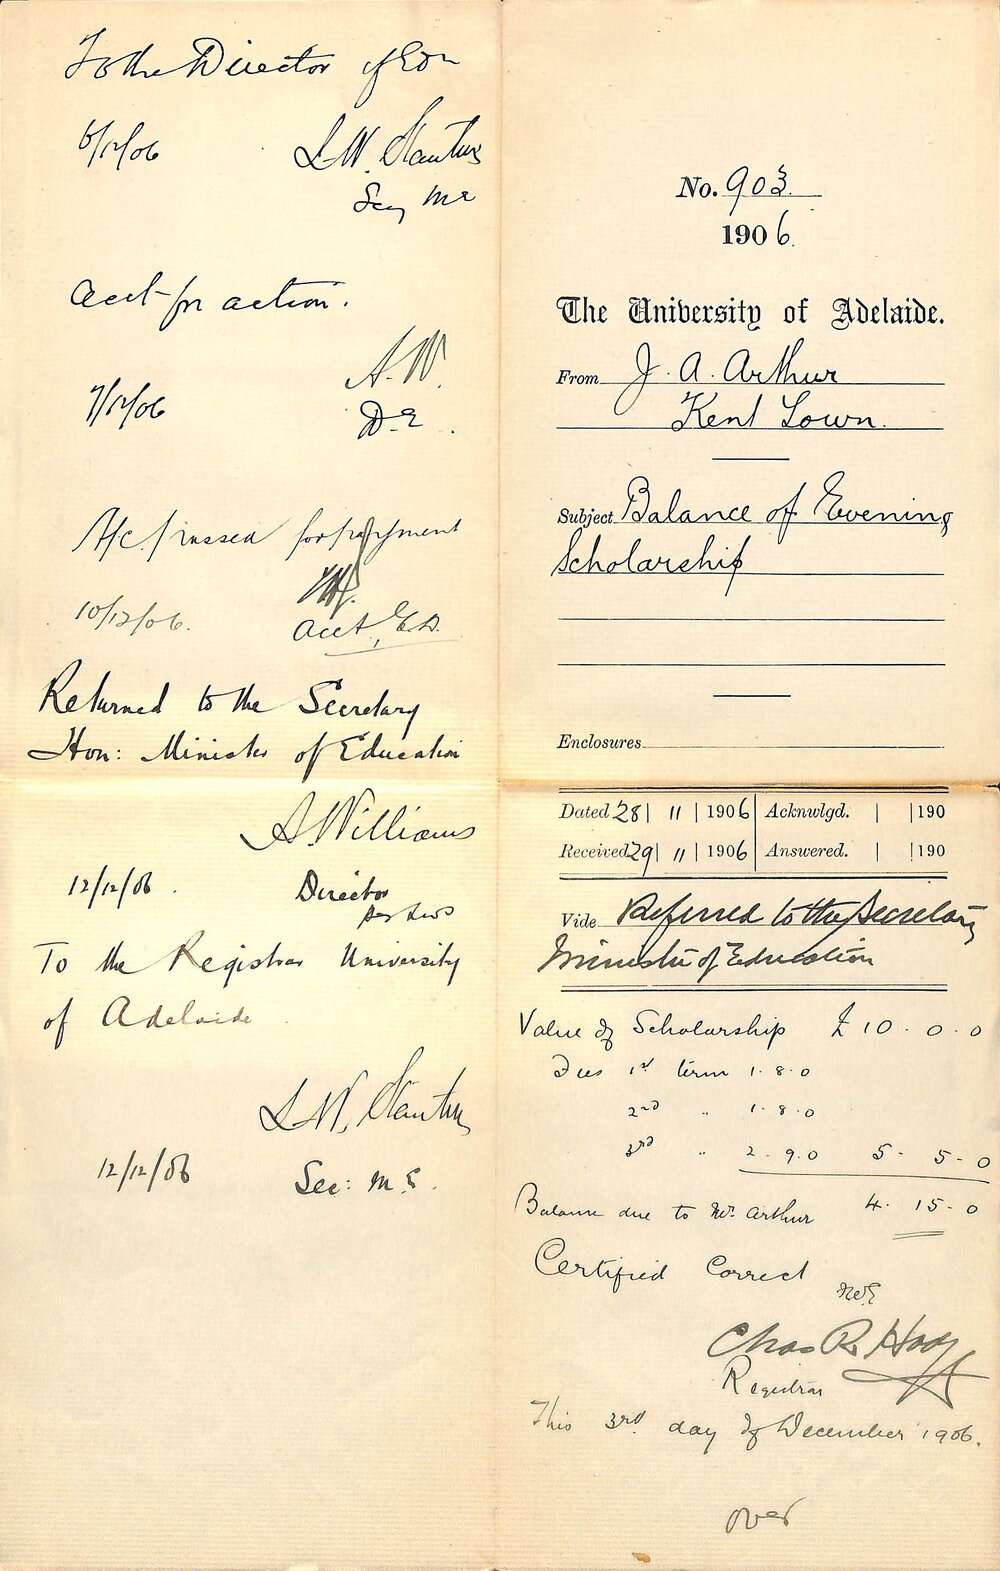 To the Director of Edn
6/12/06 L.W. Stanton
Secy ME
Acct for action.
A.W.
7/12/06 D.E.
A/c passed for payment
10/12/06. Acct, E.D.
Returned to the Secretary
Hon: Minister of Education
A. Williams
12/12/06. Director
To the Registrar University
of Adelaide
L.W. Stanton
12/12/06 Sec: M.E.
No. 903.
1906.
The University of Adelaide.
From J. A. Arthur
Kent Town.
Subject Balance of Evening
Scholarship
Enclosures
Dated 28 | 11 | 1906 Acknwlgd. | |190
Received 29 | 11 | 1906 Answered. | |190
Vide Referred to the Secretary
Minister of Education
Value of Scholarship £10.0.0
Fees 1st term 1.8.0
2nd " 1.8.0
3rd " 2.9.0 5-5-0
Balance due to Mr. Arthur 4.15-0
Certified Correct
Chas R Hodge
Registrar
This 3rd day of December 1906.
over